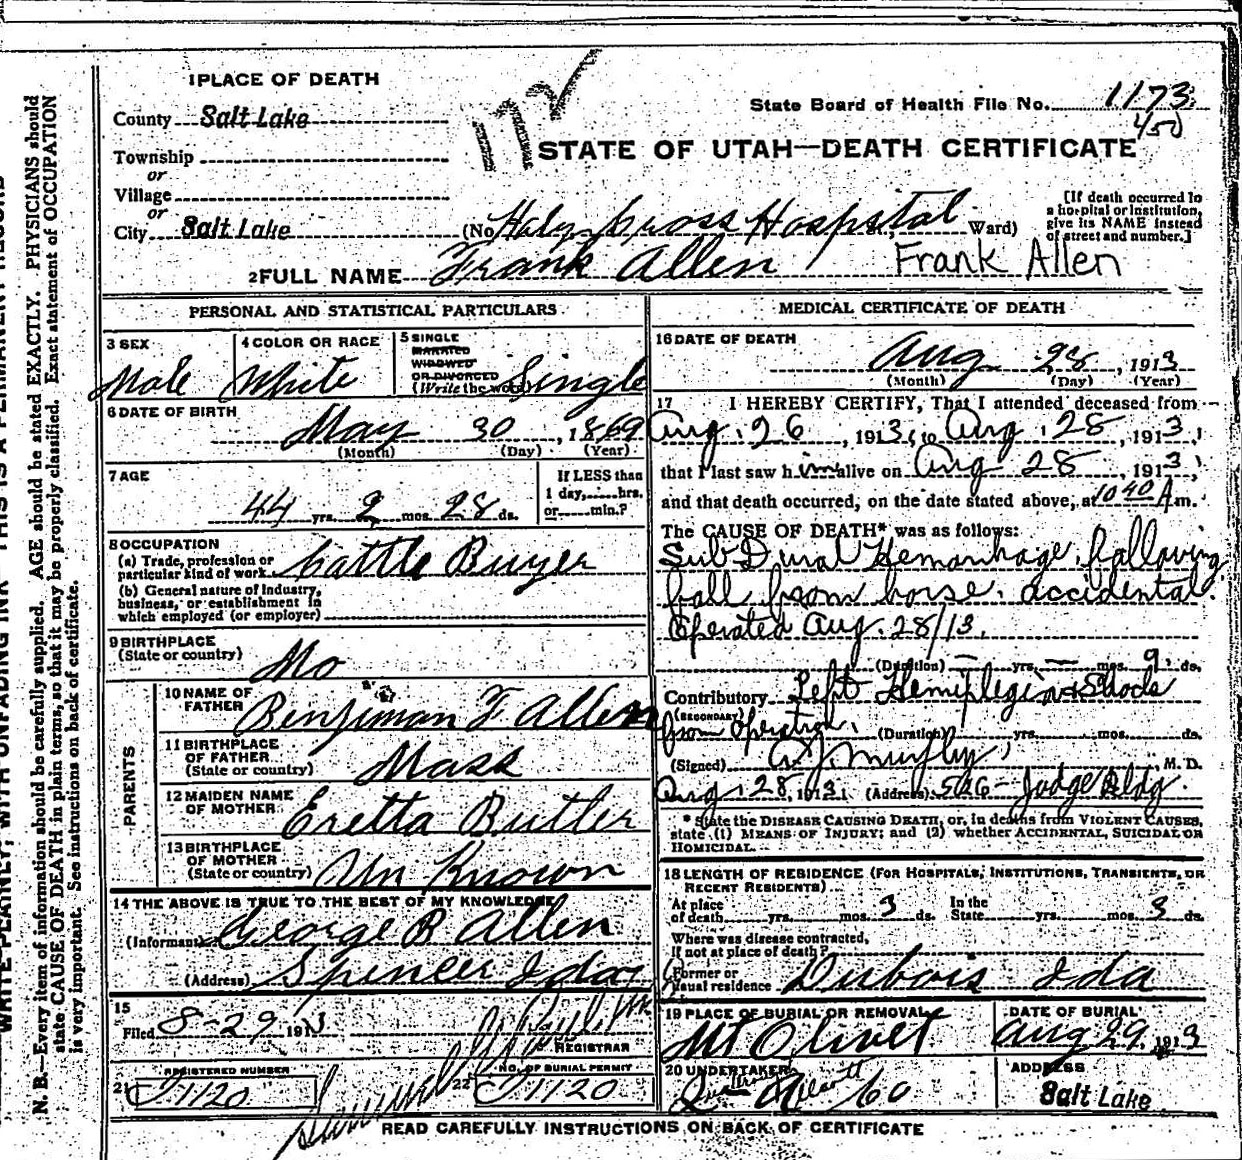 1 PLACE OF DEATH
County Salt Lake
Township
or
Village
or
City Salt Lake
172
State Board of Health File No. 1173
450
STATE OF UTAH—DEATH CERTIFICATE
(No. Holy Cross Hospital St., Ward)
[If death occurred in a hospital or institution, give its NAME instead of street and number.]
2 FULL NAME Frank Allen Frank Allen
PERSONAL AND STATISTICAL PARTICULARS
3 SEX
Male
4 COLOR OR RACE
White
5 SINGLE
MARRIED
WIDOWED
OR DIVORCED
(Write the word) Single
6 DATE OF BIRTH
May 30, 1869
(Month) (Day) (Year)
7 AGE
44 yrs. 2 mos. 28 ds.
If LESS than
1 day, hrs.
or min.?
8 OCCUPATION
(a) Trade, profession or
particular kind of work Cattle Buyer
(b) General nature of industry,
business, or establishment in
which employed (or employer)
9 BIRTHPLACE
(State or country) Mo
PARENTS
10 NAME OF
FATHER Benjiman F Allen
11 BIRTHPLACE
OF FATHER
(State or country) Mass
12 MAIDEN NAME
OF MOTHER Eretta Butler
13 BIRTHPLACE
OF MOTHER
(State or country) Un Known
14 THE ABOVE IS TRUE TO THE BEST OF MY KNOWLEDGE
(Informant) George B Allen
(Address) Spencer Ida
15
Filed 8-29 1913
REGISTRAR
21 REGISTERED NUMBER
J1120
22 NO. OF BURIAL PERMIT
J1120
MEDICAL CERTIFICATE OF DEATH
16 DATE OF DEATH
Aug 28, 1913
(Month) (Day) (Year)
17 I HEREBY CERTIFY, That I attended deceased from
Aug. 26, 1913, to Aug. 28, 1913,
that I last saw him alive on Aug 28, 1913,
and that death occurred, on the date stated above, at 10 40 A.m.
The CAUSE OF DEATH* was as follows:
Sub-Dural Hemorrhage, following
fall from horse. accidental.
Operated Aug. 28/13.
(Duration) — yrs. — mos. 9 ds.
Contributory Left Hemiplegia & Shock
(SECONDARY)
from operation. (Duration) yrs. mos. ds.
(Signed) Murphy, M. D.
Aug. 28, 1913. (Address) 506- Judge Bldg.
* State the DISEASE CAUSING DEATH, or, in deaths from VIOLENT CAUSES,
state (1) MEANS OF INJURY; and (2) whether ACCIDENTAL, SUICIDAL OR
HOMICIDAL.
18 LENGTH OF RESIDENCE (FOR HOSPITALS, INSTITUTIONS, TRANSIENTS, OR
RECENT RESIDENTS)
At place
of death yrs. mos. 3 ds. In the
State yrs. mos. 3 ds.
Where was disease contracted,
if not at place of death?
Former or
usual residence Dubois Ida
19 PLACE OF BURIAL OR REMOVAL
Mt Olivet
DATE OF BURIAL
Aug 29 1913
20 UNDERTAKER
Co
ADDRESS
Salt Lake
READ CAREFULLY INSTRUCTIONS ON BACK OF CERTIFICATE
N. B.—Every item of information should be carefully supplied. AGE should be stated EXACTLY. PHYSICIANS should
state CAUSE OF DEATH in plain terms, so that it may be properly classified. Exact statement of OCCUPATION
is very important. See instructions on back of certificate.
WRITE PLAINLY, WITH UNFADING INK—THIS IS A PERMANENT RECORD